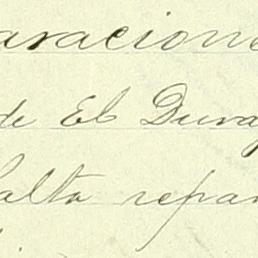 aracione
de El Durag
salta repar